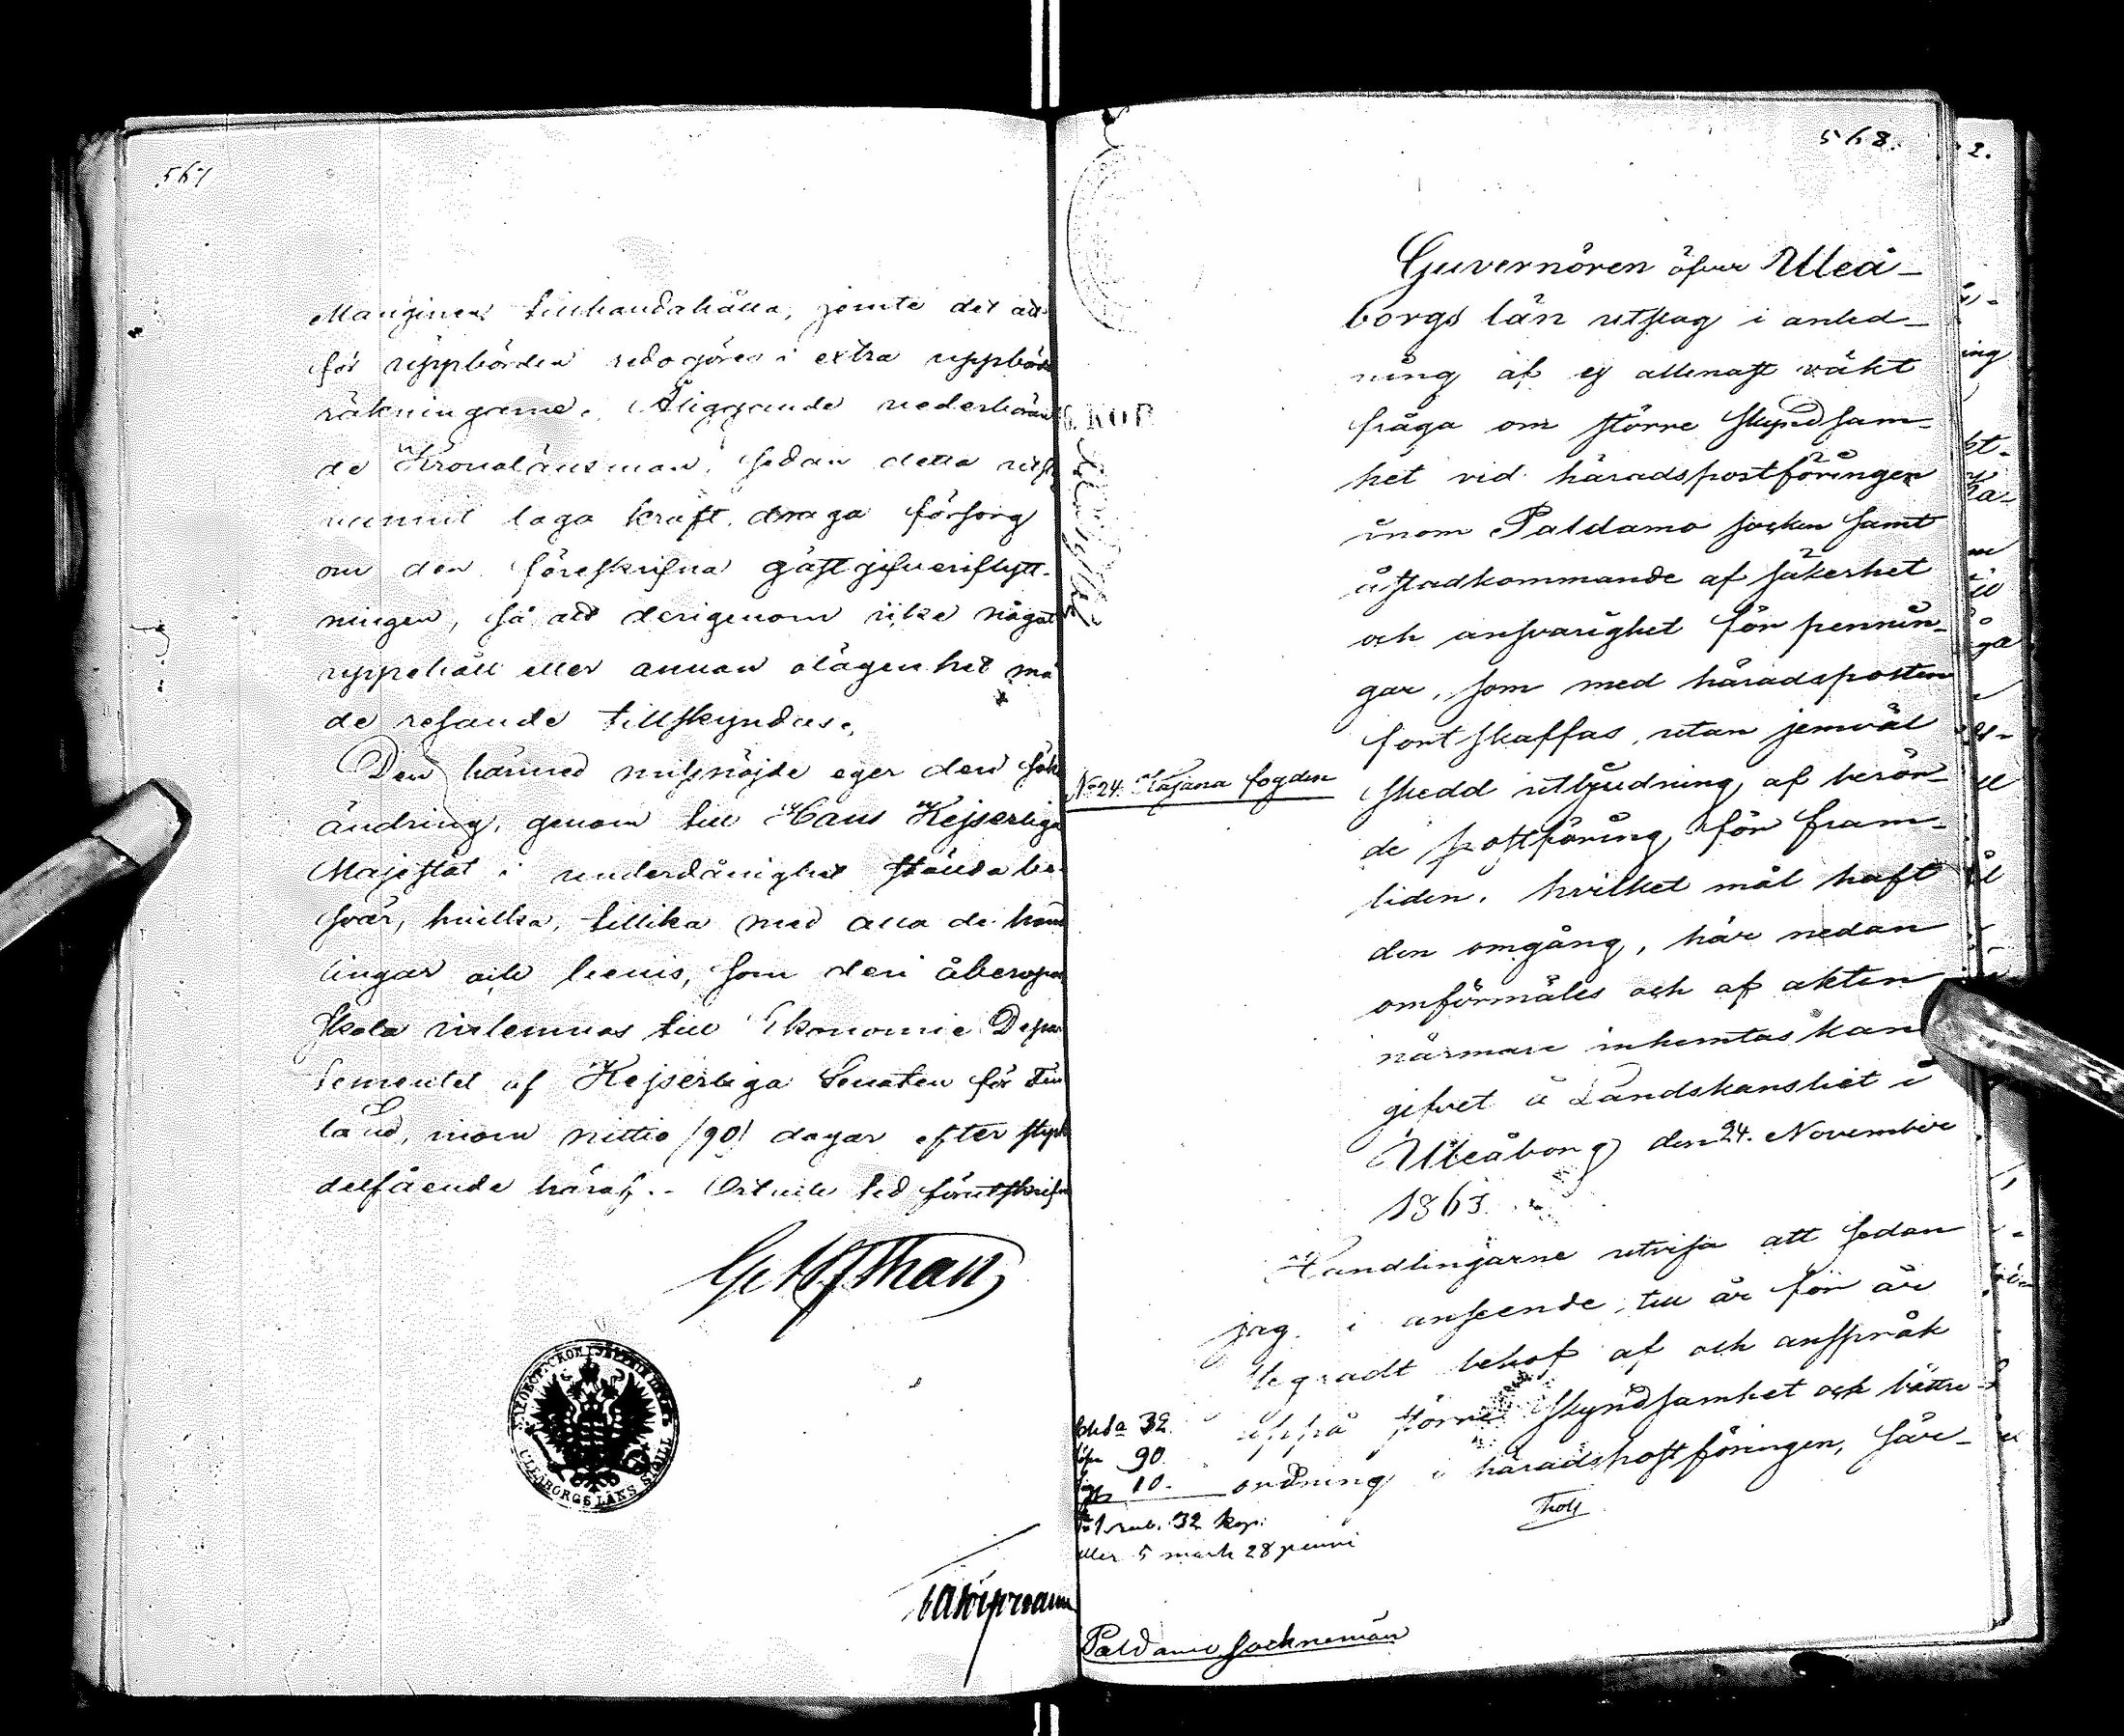 567
Manginen tillhandahålla, jemte det att
för uppbörden redogöres i extra uppbörds
räkningarne. Åliggande vederböran
de Kronolänsman, sedan detta utsl
vunnit laga kraft, draga försorg
om den föreskrifna gästgifveriflytt-
ningen, så att derigenom icke något
uppehåll eller annan olägenhet må
de resande tillskyndas.
Den härmed missnöjde eger deri sök
ändring, genom till Hans Kejserliga
Majestät i underdånighet stälda be-
svär, hvilka, tillika med alla de hand
lingar och bevis, som deri åberopas
skola inlemnas till Ekonomie Depar
tementet af Kejserliga Senaten för Fin
land, inom nittio /90/ dagar efter
delfående häraf. Ort och tid förutskrifne
ULEÅBORGS LÄNS SIGILL
568.
Guvernören öfver Uleå-
borgs län utslag i anled-
ning af ej allenast väkt
fråga om större skyndsam-
het vid häradspostföringen
inom Paldamo socken samt
åstadkommande af säkerhet
och ansvarighet för pennin-
gar, som med häradsposten
fortskaffas, utan jemväl
No 24. Kajana fogden
skedd utbjudning af berör-
de postföring för fram-
tiden, hvilket mål haft
den omgång, här nedan
omförmäles och af akten
närmare inhemtas kan
gifvet å Landskansliet i
Uleåborg den 24. November
1863.
Handlingarne utvisa att sedan
jag i anseende till år för år
stegradt behof af och anspråk
uppå större skyndsamhet och bättre
ordning i häradspostföringen, sär-
32.
90.
10.
1 rub. 32 kop.
eller 5 mark 28 penni
Paldamo Sockneman
KOP